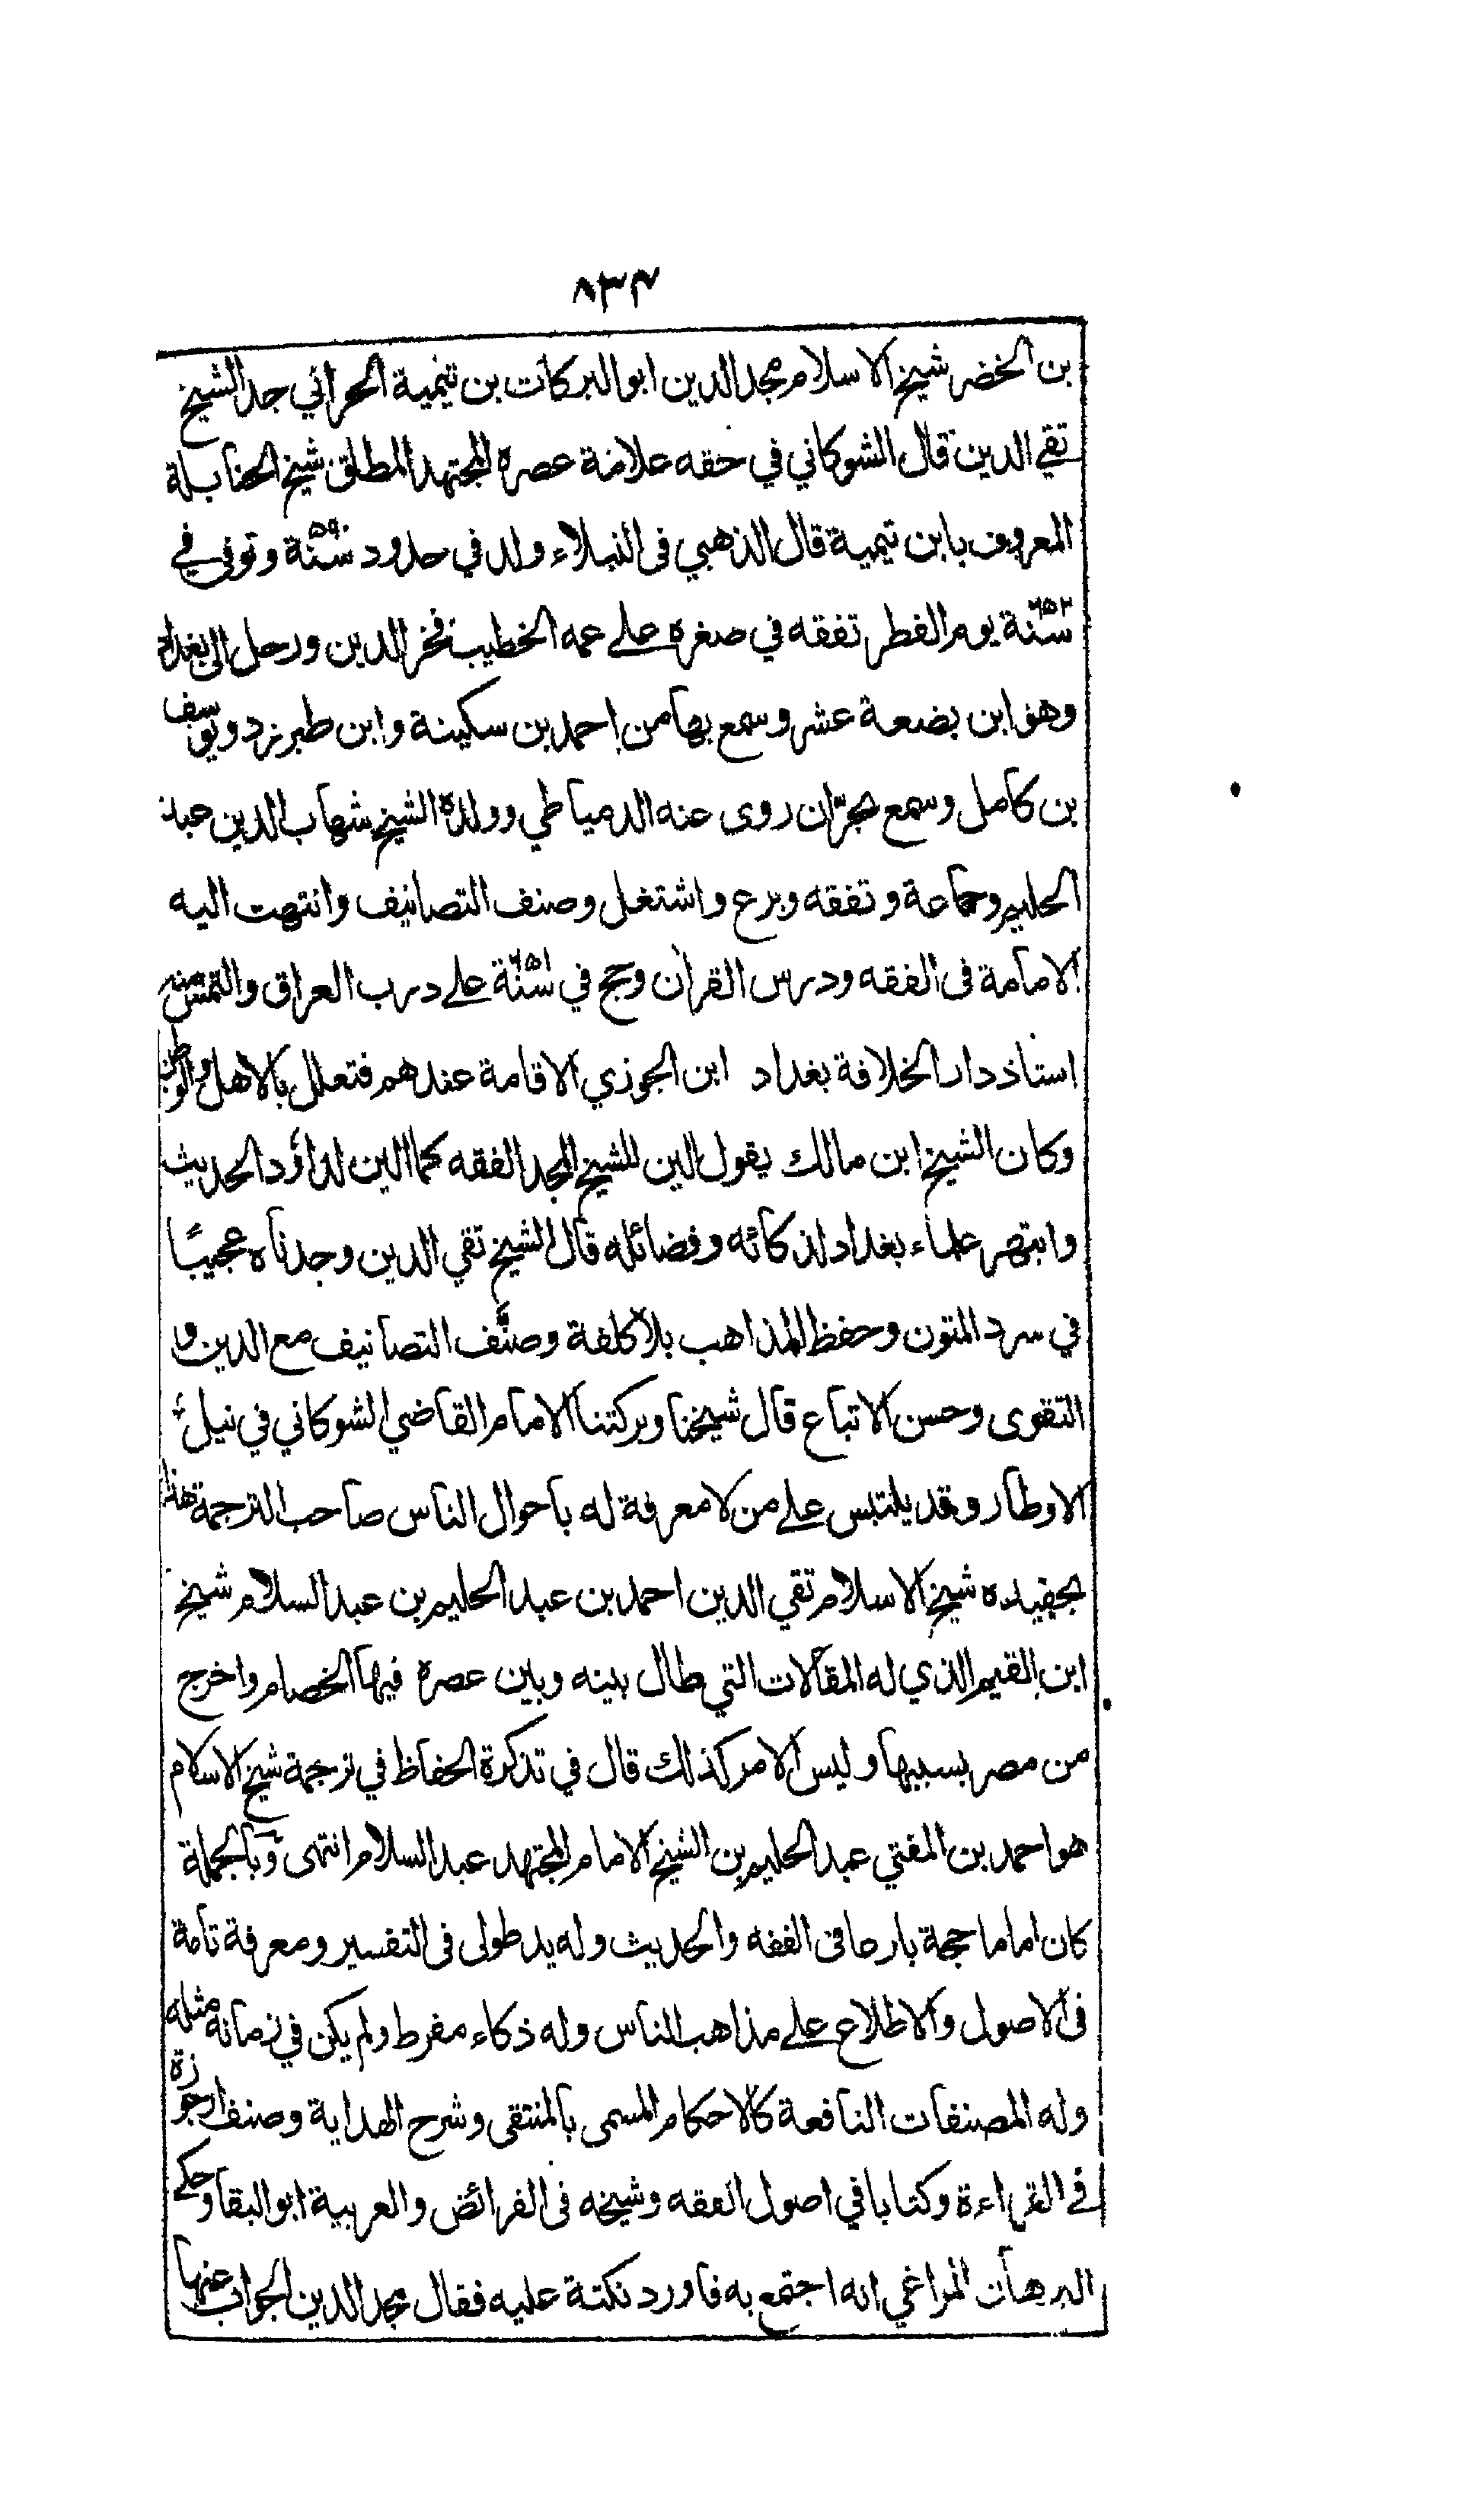 ٨٣٤
بن الخضر شيخ الاسلام مجد الدين ابو البركات بن تيمية الحراني جد الشيخ
تقي الدين قال الشوكاني في حقه علامة عصره المجتهد المطلق شيخ الحنابلة
المعروف بابن تيمية قال الذهبي فى النبلاء ولد في حدود سنة ٥٩٠ وتوفى في
سنة ٦٥٢ يوم الفطر تفقه في صغره على عمه الخطيب فخر الدين ورحل الى بغداد
وهو ابن بضعة عشر وسمع بها من احمد بن سكينة وابن طبرزد ويوسف
بن كامل وسمع بحران روى عنه الدمياطي وولده الشيخ شهاب الدين عبد
الحليم وجماعة وتفقه وبرع واشتغل وصنف التصانيف وانتهت اليه
الامامة فى الفقه ودرس القران وحج في سنة ٦٥١ على درب العراق والتمس منه
استاذ دار الخلافة بغداد ابن الجوزي الاقامة عندهم فتعلل بالاهل والوطن
وكان الشيخ ابن مالك يقول الين للشيخ المجد الفقه كما الين لداؤد الحديث
وابتهر علماء بغداد لذكائه وفضائله قال الشيخ تقي الدين وجدناه عجيبًا
في سرد المتون وحفظ المذاهب بلا كلفة وصنَّف التصانيف مع الدين و
التقوى وحسن الاتباع قال شيخنا وبركتنا الامام القاضي الشوكاني في نيل
الاوطار وقد يلتبس على من لا معرفة له باحوال الناس صاحب الترجمة هذا
بحفيده شيخ الاسلام تقي الدين احمد بن عبد الحليم بن عبد السلام شيخ
ابن القيم الذي له المقالات التي طال بينه وبين عصره فيها الخصام واخرج
من مصر بسببها وليس الامر كذلك قال في تذكرة الحفاظ في ترجمة شيخ الاسلام
هو احمد بن المفتي عبد الحليم بن الشيخ الامام المجتهد عبد السلام انتهى وبالجملة
كان اماما حجة بارعا فى الفقه والحديث وله يد طولى فى التفسير ومعرفة تامة
فى الاصول والاطلاع على مذاهب الناس وله ذكاء مفرط ولم يكن في زمانه مثله
وله المصنفات النافعة كالاحكام المسمى بالمنتقى وشرح الهداية وصنف ارجوزة
في القراءة وكتابا في اصول الفقه وشيخه فى الفرائض والعربية ابو البقا وحكى
البرهان المراغي انه اجتمع به فاورد نكتة عليه فقال مجد الدين الجواب عنها